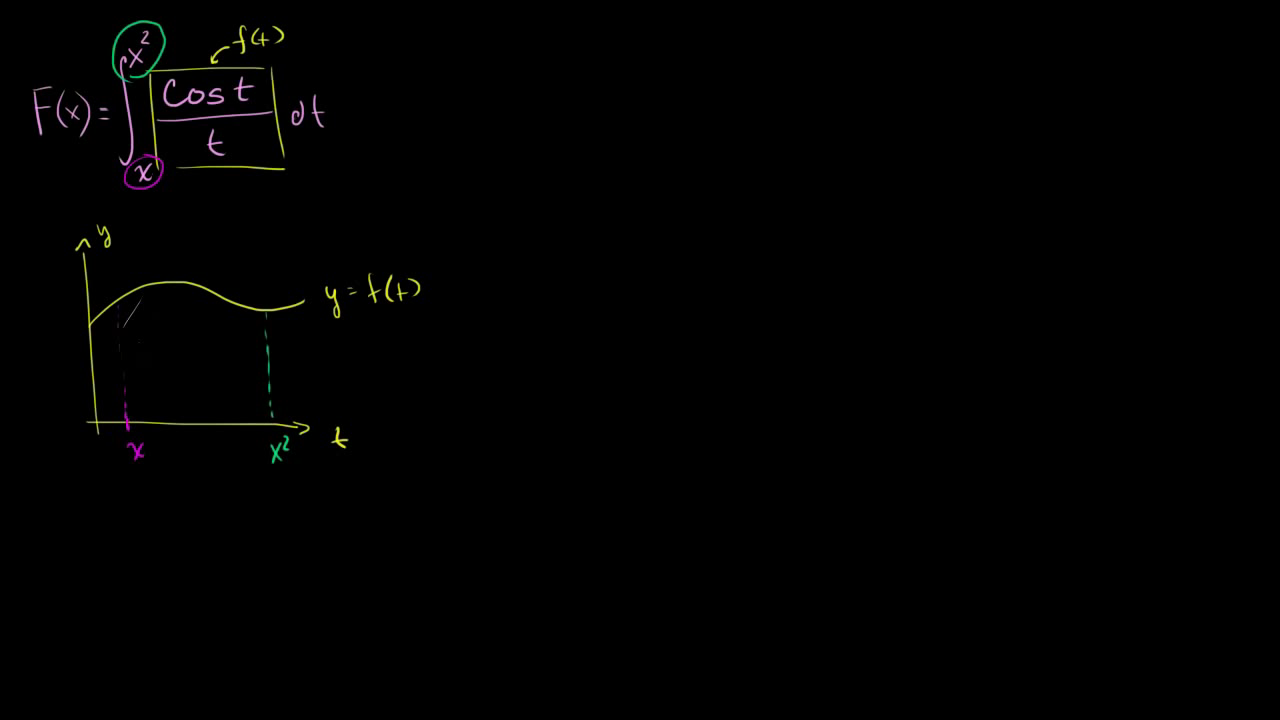 F(x) = ∫ₓ^x² cos t / t dt
f(t)
y
y = f(t)
t
x
x²